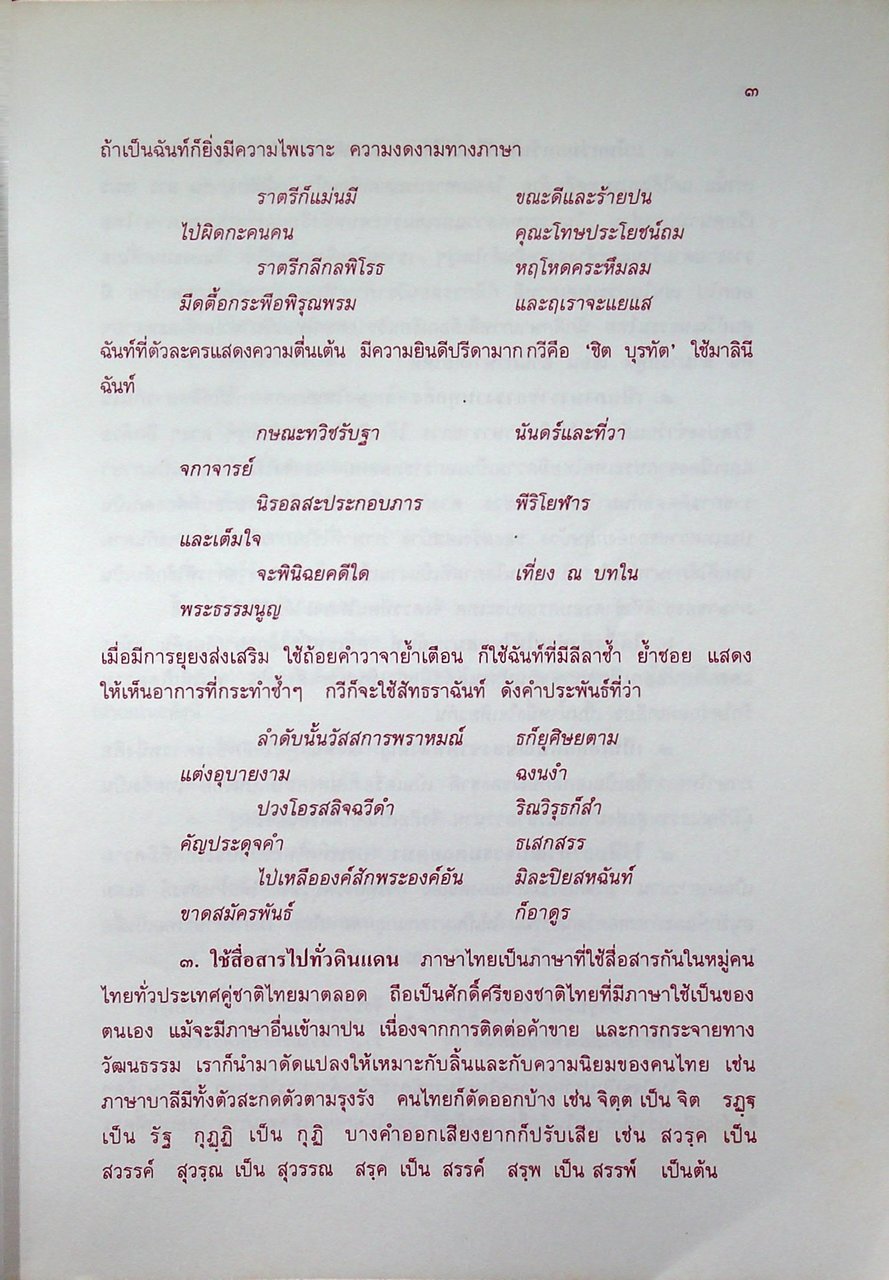 ๓
ถ้าเป็นฉันท์ก็ยิ่งมีความไพเราะ ความงดงามทางภาษา
ราตรีก็แม่นมี ขณะดีและร้ายปน
ไปผิดกะคนคน คุณะโทษประโยชน์ถม
ราตรีกลีกลพิโรธ หฤโหดคระหึมลม
มืดตื้อกระพือพิรุณพรม และฤเราจะแยแส
ฉันท์ที่ตัวละครแสดงความตื่นเต้น มีความยินดีปรีดามาก กวีคือ ‘ชิต บุรทัต’ ใช้มาลินี
ฉันท์
กษณะทวิชรับฐา นันดร์และที่วา
จกาจารย์
นิรอลสะประกอบภาร พีริโยฬาร
และเต็มใจ
จะพินิฉยคดีใด เที่ยง ณ บทใน
พระธรรมนูญ
เมื่อมีการยุยงส่งเสริม ใช้ถ้อยคำวาจาย้ำเตือน ก็ใช้ฉันท์ที่มีลีลาซ้ำ ย้ำซอย แสดง
ให้เห็นอาการที่กระทำซ้ำๆ กวีก็จะใช้สัทธราฉันท์ ดังคำประพันธ์ที่ว่า
ลำดับนั้นวัสสการพราหมณ์ ธก็ยุศิษยตาม
แต่งอุบายงาม ฉงนงำ
ปวงโอรสลิจฉวีดำ ริณวิรุธก็สำ
คัญประดุจคำ ธเสกสรร
ไป่เหลือองค์สักพระองค์อัน มิละปิยสหฉันท์
ขาดสมัครพันธ์ ก็อาดูร
๓. ใช้สื่อสารไปทั่วดินแดน ภาษาไทยเป็นภาษาที่ใช้สื่อสารกันในหมู่คน
ไทยทั่วประเทศคู่ชาติไทยมาตลอด ถือเป็นศักดิ์ศรีของชาติไทยที่มีภาษาใช้เป็นของ
ตนเอง แม้จะมีภาษาอื่นเข้ามาปน เนื่องจากการติดต่อค้าขาย และการกระจายทาง
วัฒนธรรม เราก็นำมาดัดแปลงให้เหมาะกับลิ้นและกับความนิยมของคนไทย เช่น
ภาษาบาลีมีทั้งตัวสะกดตัวตามรุงรัง คนไทยก็ตัดออกบ้าง เช่น จิตฺต เป็น จิต รฏฺฐ
เป็น รัฐ กุฏฺฏิ เป็น กุฏิ บางคำออกเสียงยากก็ปรับเสีย เช่น สวรฺค เป็น
สวรรค์ สุวรฺณ เป็น สุวรรณ สรฺค เป็น สรรค์ สรฺพ เป็น สรรพ์ เป็นต้น